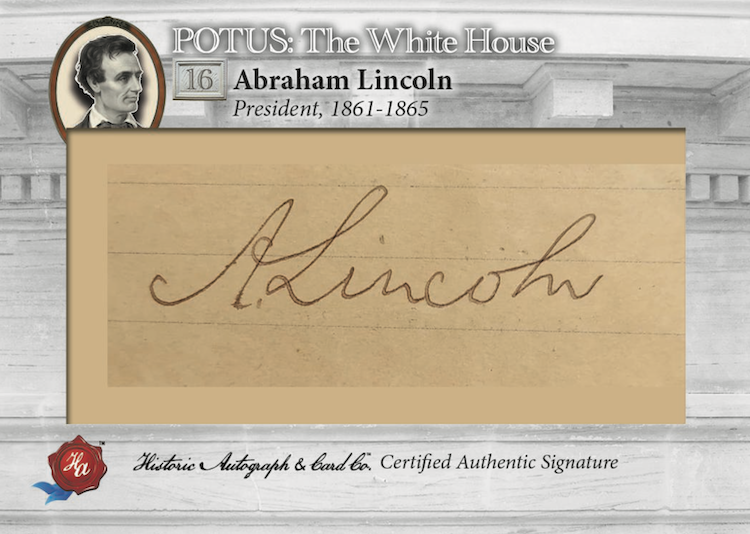 POTUS: The White House
16 Abraham Lincoln
President, 1861-1865
A. Lincoln
HA Historic Autograph & Card Co.™ Certified Authentic Signature